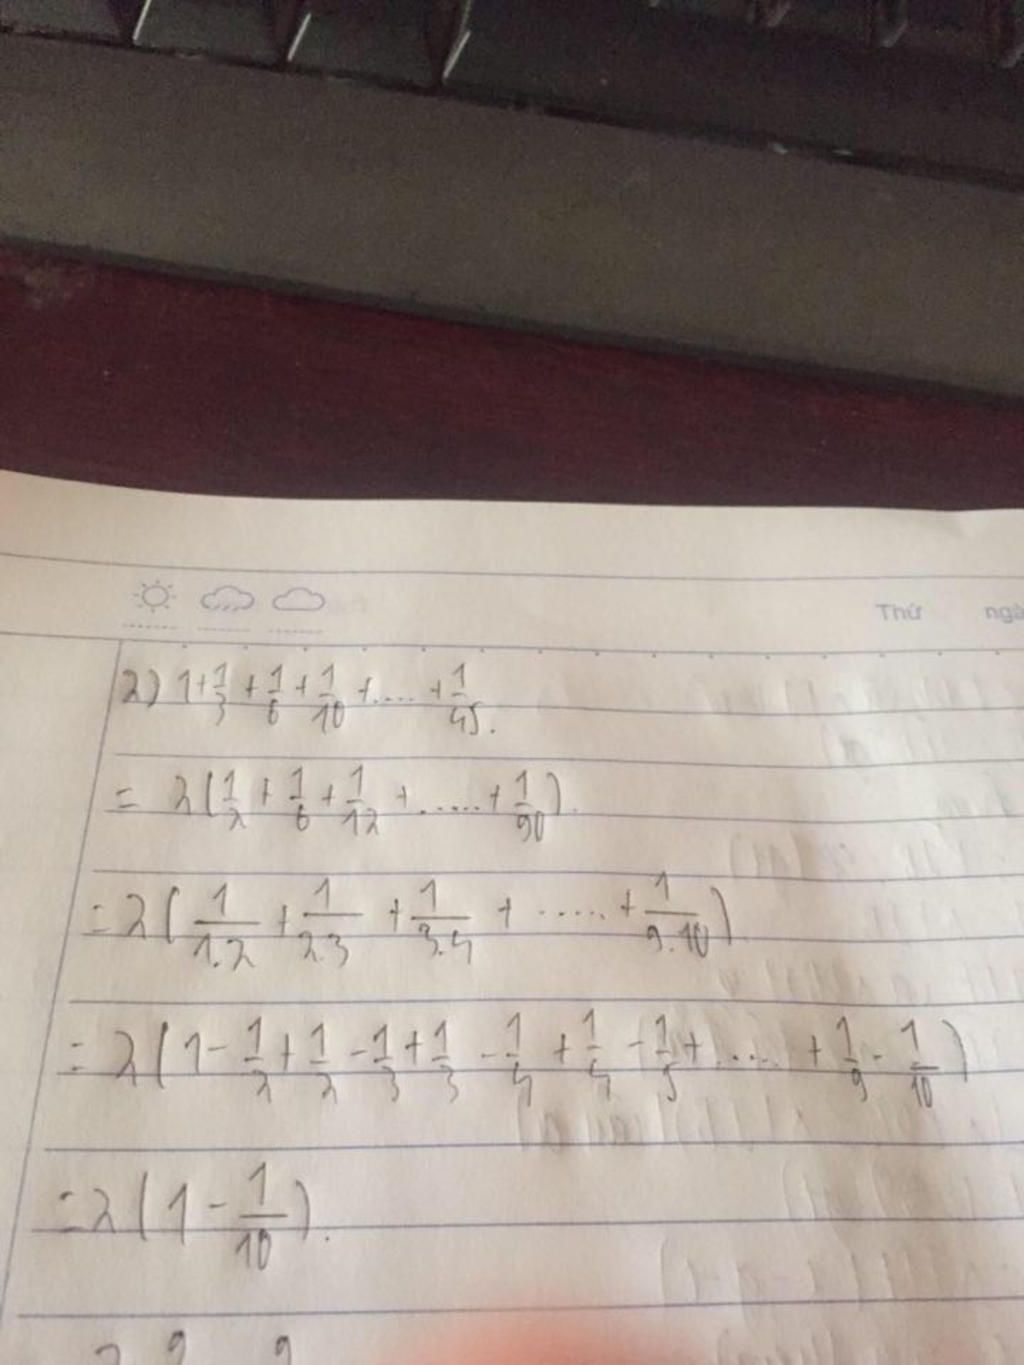 Thứ ngà
2) 1 + 1/3 + 1/6 + 1/10 + .... + 1/45.
= 2(1/2 + 1/6 + 1/12 + ..... + 1/90).
= 2(1/1.2 + 1/2.3 + 1/3.4 + ..... + 1/9.10)
= 2(1 - 1/2 + 1/2 - 1/3 + 1/3 - 1/4 + 1/4 - 1/5 + .... + 1/9 - 1/10)
= 2(1 - 1/10).